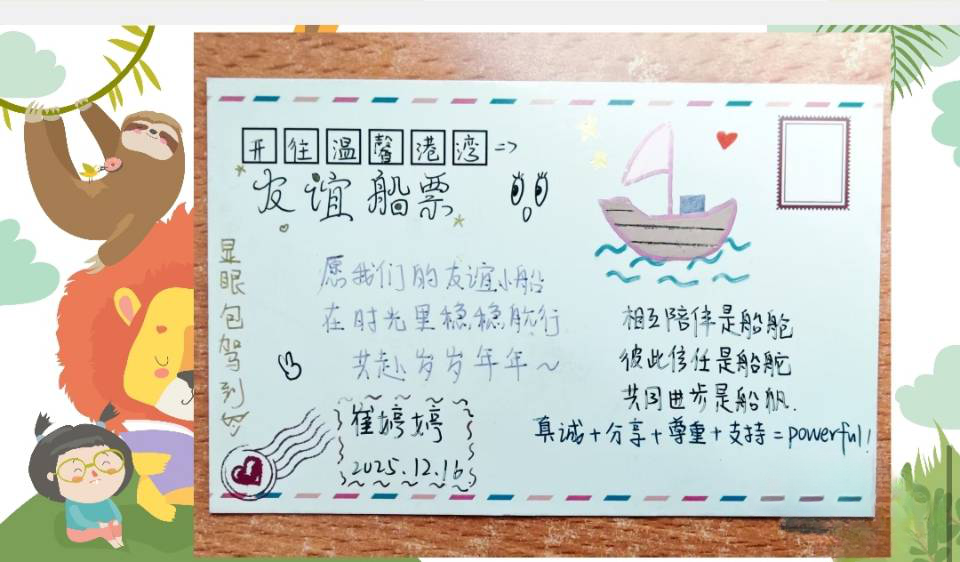 开往温馨港湾=>
友谊船票
显眼包驾到
愿我们的友谊小船
在时光里稳稳航行
共赴岁岁年年~
崔婷婷
2025.12.16
相互陪伴是船舱
彼此信任是船舵
共同进步是船帆.
真诚+分享+尊重+支持=powerful!